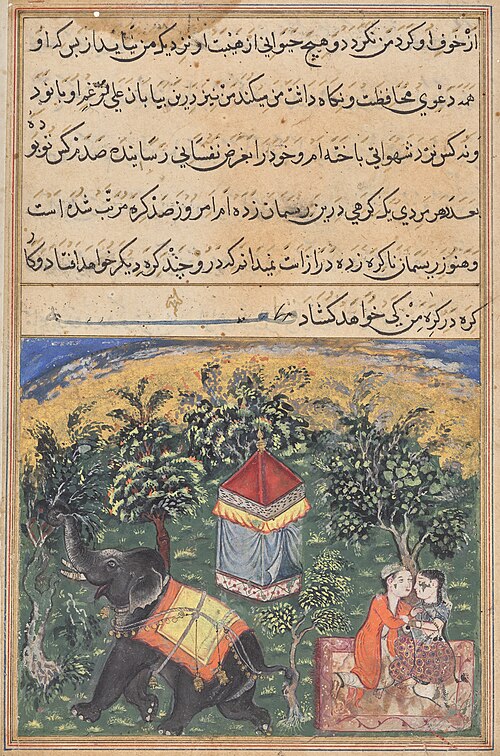 از خوف او کرد من نکردد و هیچ حیوانی از هیبت او نزدیک من نیاید از بس که او
همه دعوی محافظت و نکاه داشت من میکند من نیز درین بیابان علی رغم او با نود
و نه کس نرد شهوانی باخته ام و خود را بغرض نفسانی رسانیده صدم کس تو بوده
بعدد هر مردی یک کرهی درین ریسمان زده ام امروز صد کره مرتب شده است
و هنوز ریسمان ناکره زده دراز است نمیدانم که درو چند کره دیکر خواهد افتاد و کار
کره در کره من کی خواهد کشاد